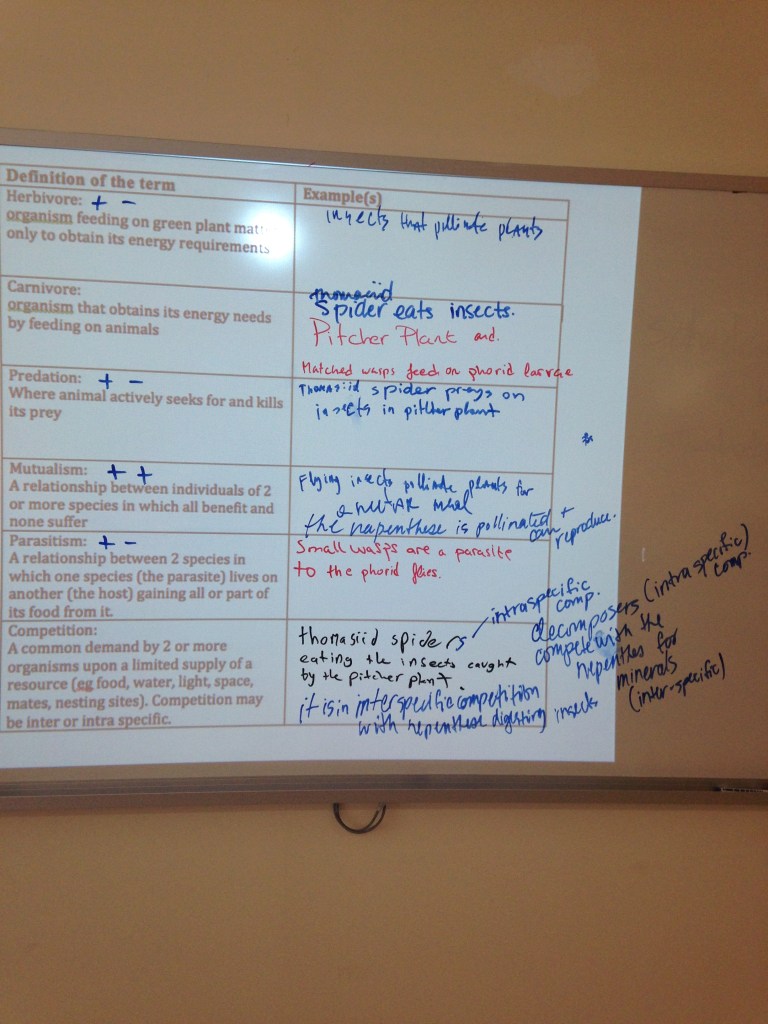 Definition of the term
Example(s)
Herbivore: + -
organism feeding on green plant matt
only to obtain its energy requirements
insects that pollinate plants
Carnivore:
organism that obtains its energy needs
by feeding on animals
thomasiid
Spider eats insects.
Pitcher Plant and.
Matched wasps feed on phorid larvae
Predation: + -
Where animal actively seeks for and kills
its prey
Thomasiid spider preys on
insects in pitcher plant
Mutualism: + +
A relationship between individuals of 2
or more species in which all benefit and
none suffer
Flying insects pollinate plants for
a nectar meal
the napenthese is pollinated +
can reproduce.
Parasitism: + -
A relationship between 2 species in
which one species (the parasite) lives on
another (the host) gaining all or part of
its food from it.
Small wasps are a parasite
to the phorid flies.
Competition:
A common demand by 2 or more
organisms upon a limited supply of a
resource (eg food, water, light, space,
mates, nesting sites). Competition may
be inter or intra specific.
thomasiid spiders
eating the insects caught
by the pitcher plant.
intraspecific
comp.
it is in interspecific competition
with nepenthese digesting insects
decomposers (intraspecific)
comp.
compete with the
nepenthes for
minerals
(inter-specific)